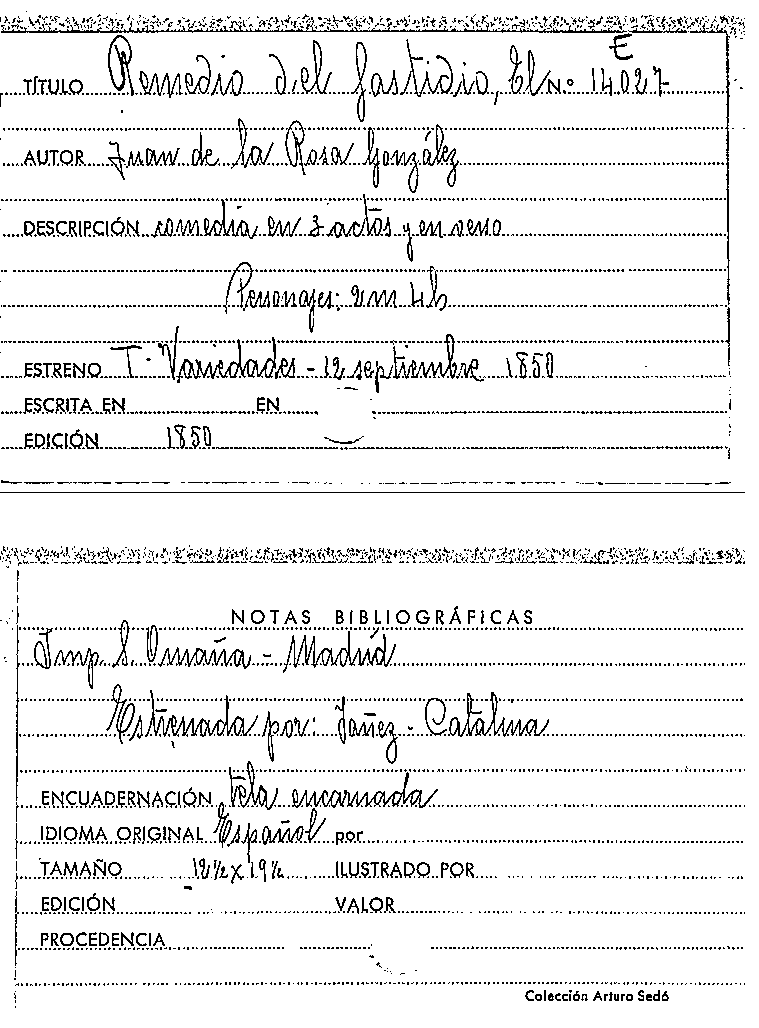 E
TÍTULO Remedio del fastidio, El N.º 14027
AUTOR Juan de la Rosa González
DESCRIPCIÓN comedia en 3 actos y en verso
Personajes: 2m 4h
ESTRENO T. Variedades - 12 septiembre 1850
ESCRITA EN EN
EDICIÓN 1850
NOTAS BIBLIOGRÁFICAS
Imp. S. Omaña - Madrid
Estrenada por: Yañez - Catalina
ENCUADERNACIÓN tela encarnada
IDIOMA ORIGINAL Español por
TAMAÑO 12½ x 19½ ILUSTRADO POR
EDICIÓN VALOR
PROCEDENCIA
Colección Arturo Sedó